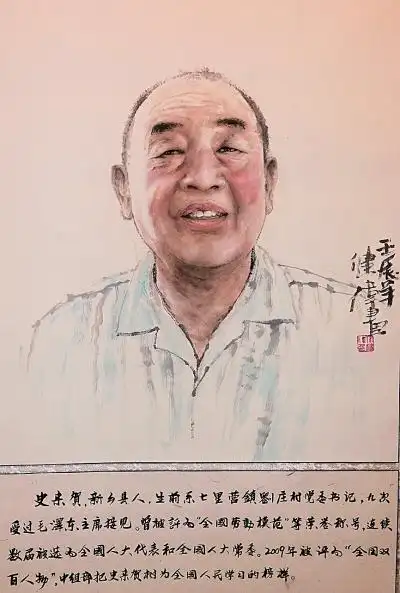 壬辰年
史来賀,新乡县人,生前系七里营鎮劉庄村党委书记,九次
受过毛澤东主席接见。曾被評为"全國劳動模范"等荣誉称号,连续
数届被选为全國人大代表和全國人大常委。2009年被評为"全国双
百人物",中组部把史来賀树为全国人民学习的榜样。